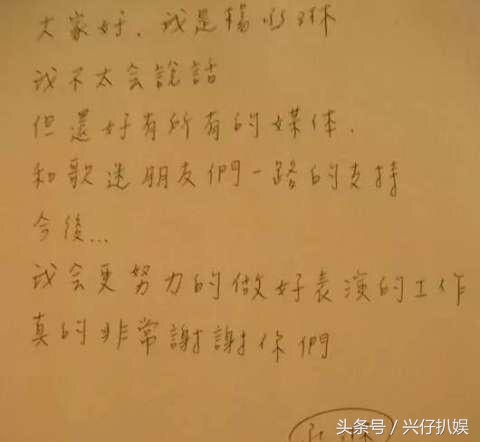 大家好，我是楊丞琳
我不太会說話
但還好有所有的媒体，
和歌迷朋友們一路的支持
今後...
我会更努力的做好表演的工作
真的非常謝謝你們
头条号／兴仔扒娱